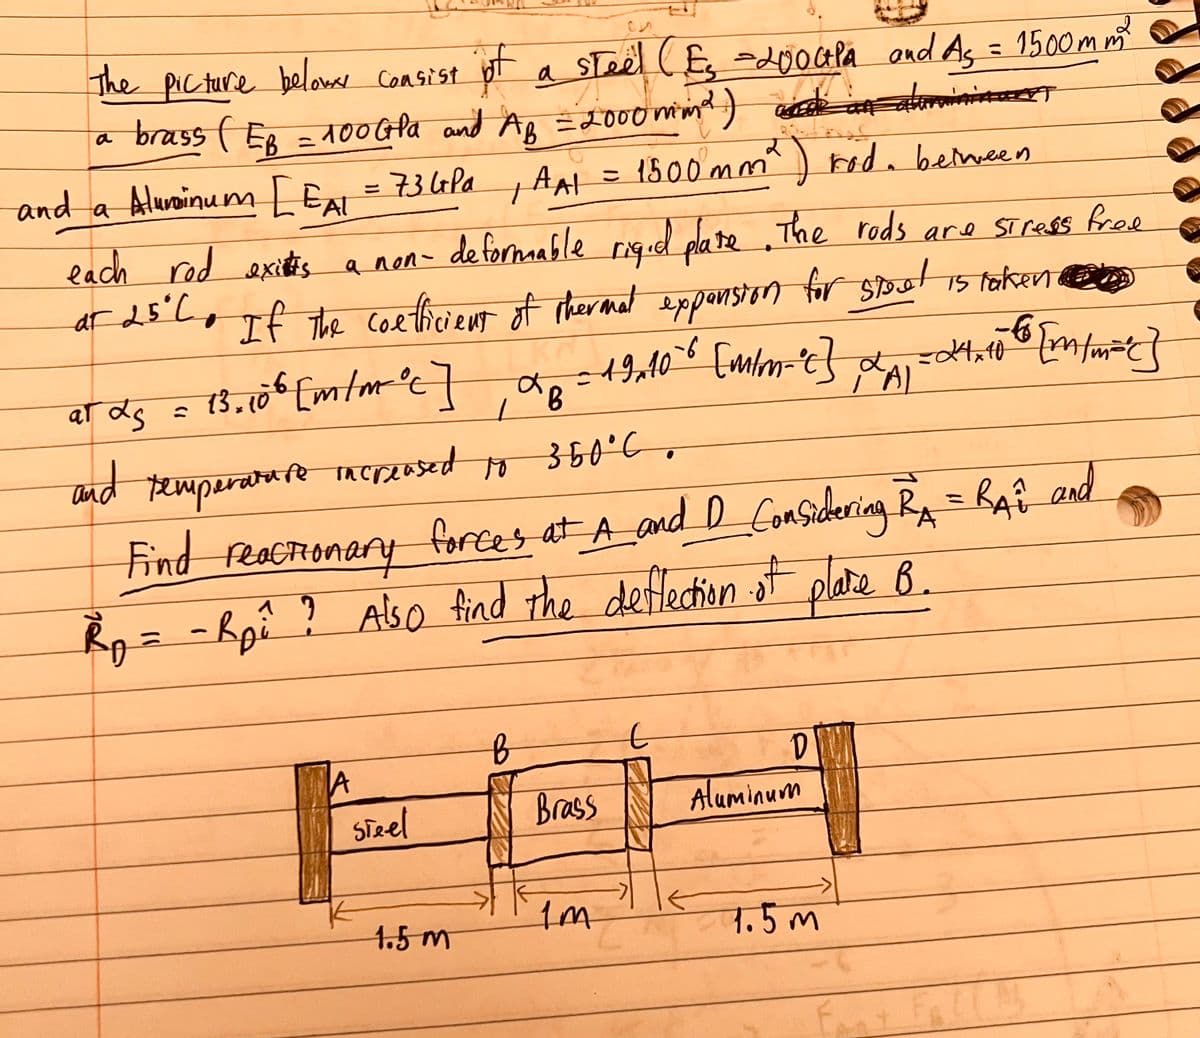 The picture below consist of a steel ( Es = 200 GPa and As = 1500 mm²
a brass ( EB = 100 GPa and AB = 2000 mm² )
and a Aluminum [ EAl = 73 GPa , AAl = 1500 mm² ) rod. between
each rod exists a non-deformable rigid plate . The rods are stress free
at 25°C. If the coefficient of thermal expansion for steel is taken
at αs = 13×10⁻⁶ [m/m-°c] , αB = 19×10⁻⁶ [m/m-°c] , αAl = 24×10⁻⁶ [m/m-°c]
and temperature increased to 350°C .
Find reactionary forces at A and D Considering R⃗A = RA î and
R⃗D = -RD î ? Also find the deflection of plate B.
A B C D
steel Brass Aluminum
1.5 m 1 m 1.5 m